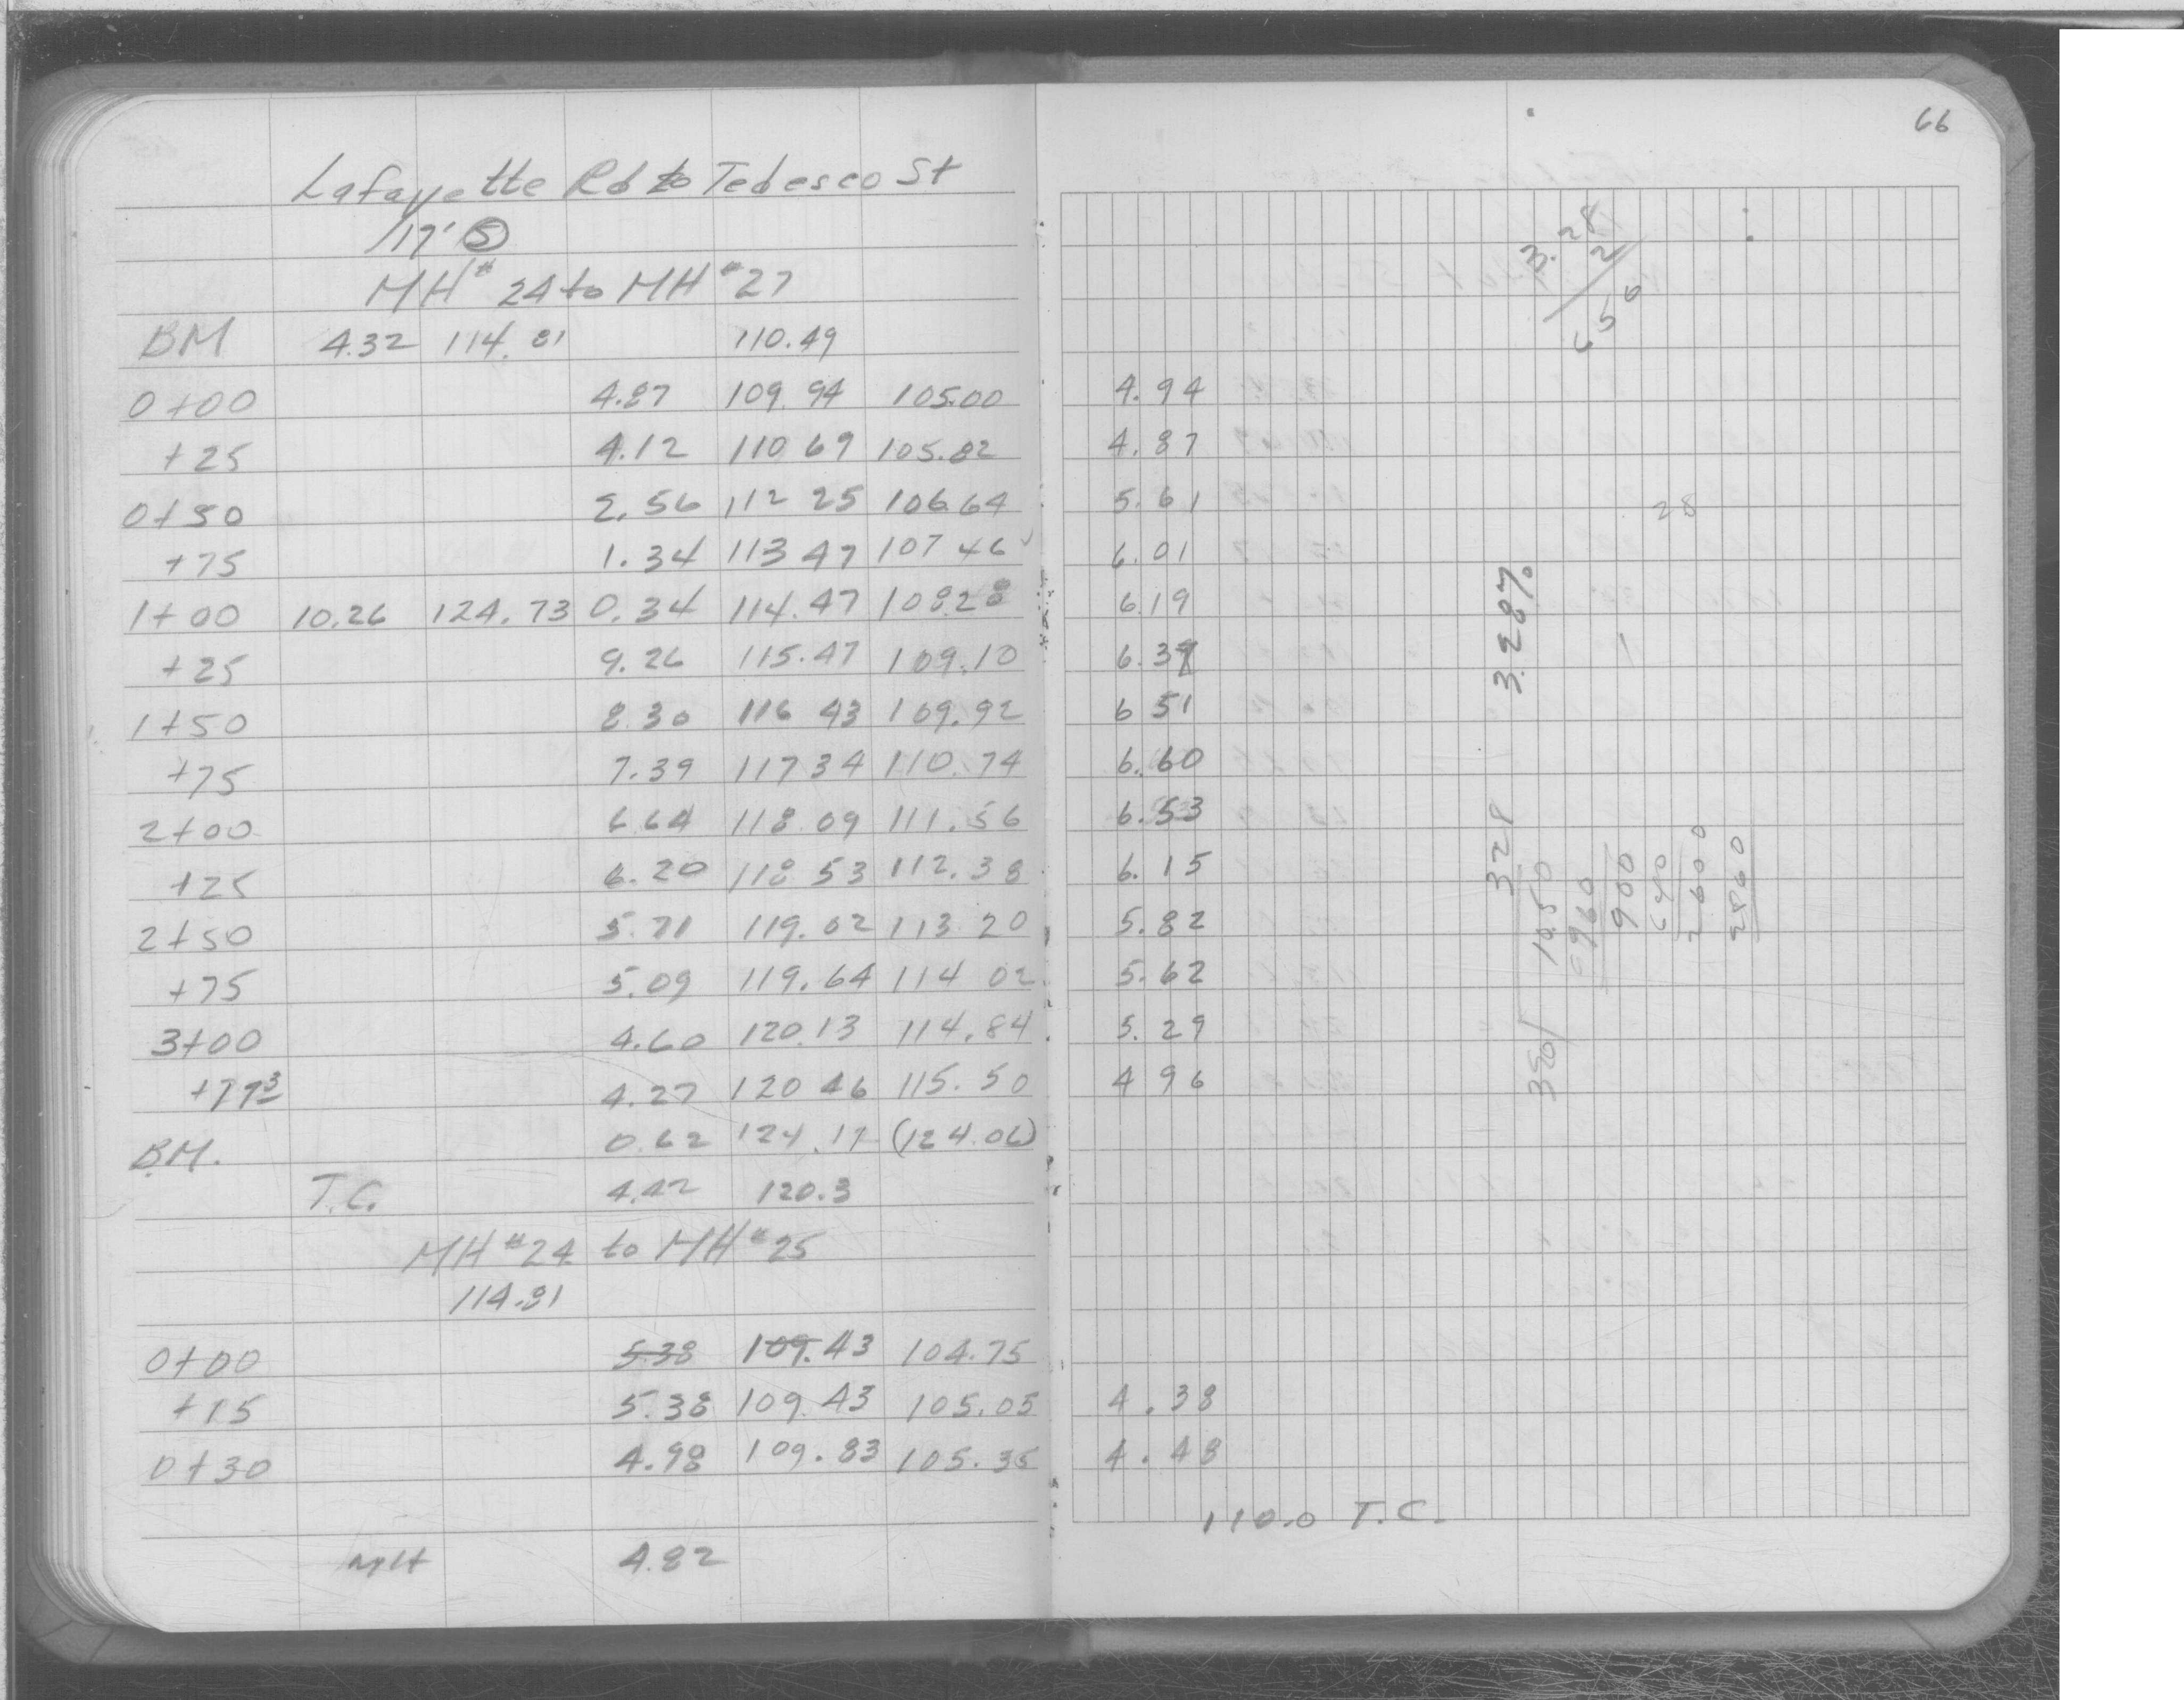 66
Lafayette Rd to Tedesco St
17' S
MH# 24 to MH #27
BM 4.32 114.81 110.49
0+00 4.87 109.94 105.00 4.94
+25 4.12 110 69 105.82 4.87
0+50 2.56 112 25 106.64 5.61
+75 1.34 113 47 107 46 6.01
1+00 10.26 124.73 0.34 114.47 108.28 6.19
+25 9.26 115.47 109.10 6.37
1+50 8.30 116 43 109.92 6 51
+75 7.39 117 34 110.74 6.60
2+00 6.64 118 09 111.56 6.53
+25 6.20 118 53 112.38 6.15
2+50 5.71 119.02 113 20 5.82
+75 5.09 119.64 114 02 5.62
3+00 4.60 120.13 114.84 5.29
4.27 120 46 115.50 4 96
BM. 0.62 124.11 (124.06)
T.C. 4.42 120.3
MH #24 to MH #25
114.81
0+00 5.38 109.43 104.75
+15 5.38 109.43 105.05 4.38
0+30 4.98 109.83 105.35 4.48
110.0 T.C.
4.82
3.28
2
656
28
3.28%
328
10.50
960
900
640
2600